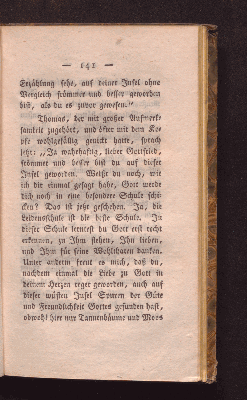 — 141 —
Erzählung sehe, auf deiner Insel ohne
Vergleich frömmer und besser geworden
bist, als du es zuvor gewesen."
Thomas, der mit großer Aufmerk-
samkeit zugehört, und öfter mit dem Ko-
pfe wohlgefällig genickt hatte, sprach
jetzt: „Ja wahrhaftig, lieber Gottfried,
frömmer und besser bist du auf dieser
Insel geworden. Weißt du noch, wie
ich dir einmal gesagt habe, Gott werde
dich noch in eine besondere Schule schi-
cken? Das ist jetzt geschehen. Ja, die
Leidensschule ist die beste Schule. In
dieser Schule lerntest du Gott erst recht
erkennen, zu Ihm flehen, Ihn lieben,
und Ihm für seine Wohlthaten danken.
Unter anderm freut es mich, daß du,
nachdem einmal die Liebe zu Gott in
deinem Herzen reger geworden, auch auf
dieser wüsten Insel Spuren der Güte
und Freundlichkeit Gottes gefunden hast,
obwohl hier nur Tannenbäume und Moos